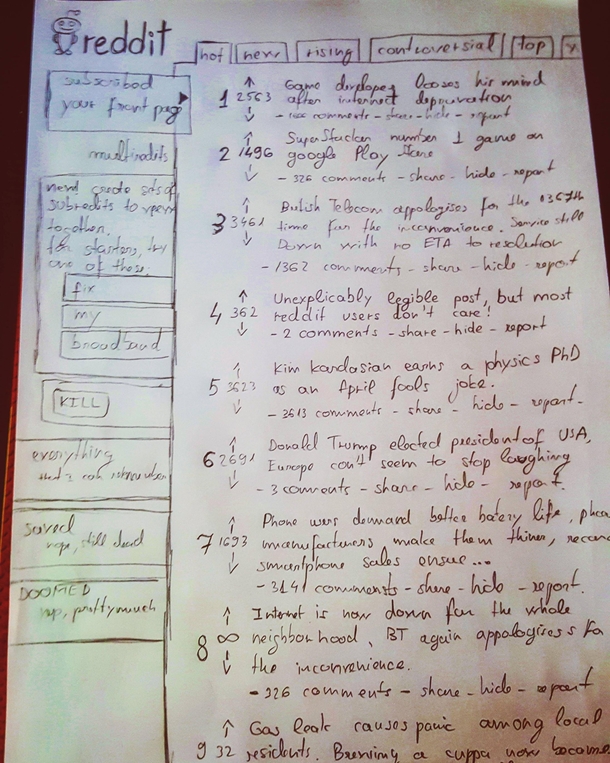 reddit
hot
new
rising
controversial
top
subscribed
your front page
multiredits
new! create sets of
subredits to view
together.
for starters, try
one of these:
fix
my
broadband
KILL
everything
that I can remember
saved
nope, still dead
DOOMED
yup, pretty much
1 2563 Game developer looses his mind
after internet deprivation
comments - share - hide - report
2 1496 SuperStacker number 1 game on
google Play Store
- 326 comments - share - hide - report
3 3461 British Telecom appologises for the
time for the inconvenience. Service still
Down with no ETA to resolution
- 1362 comments - share - hide - report
4 362 Unexplicably legible post, but most
reddit users don't care!
- 2 comments - share - hide - report
5 3623 Kim Kardasian earns a physics PhD
as an April fools joke.
- 3613 comments - share - hide - report -
6 2691 Donald Trump elected president of USA,
Europe can't seem to stop laughing
- 3 comments - share - hide - report.
7 1693 Phone users demand better batery life,
manufacturers make them thiner,
smartphone sales ensue...
- 3141 comments - share - hide - report.
8 ∞ Internet is now down for the whole
neighborhood, BT again appologises fo
the inconvenience.
- 326 comments - share - hide - report
9 32 Gas leak causes panic among local
residents. Brewing a cuppa now become